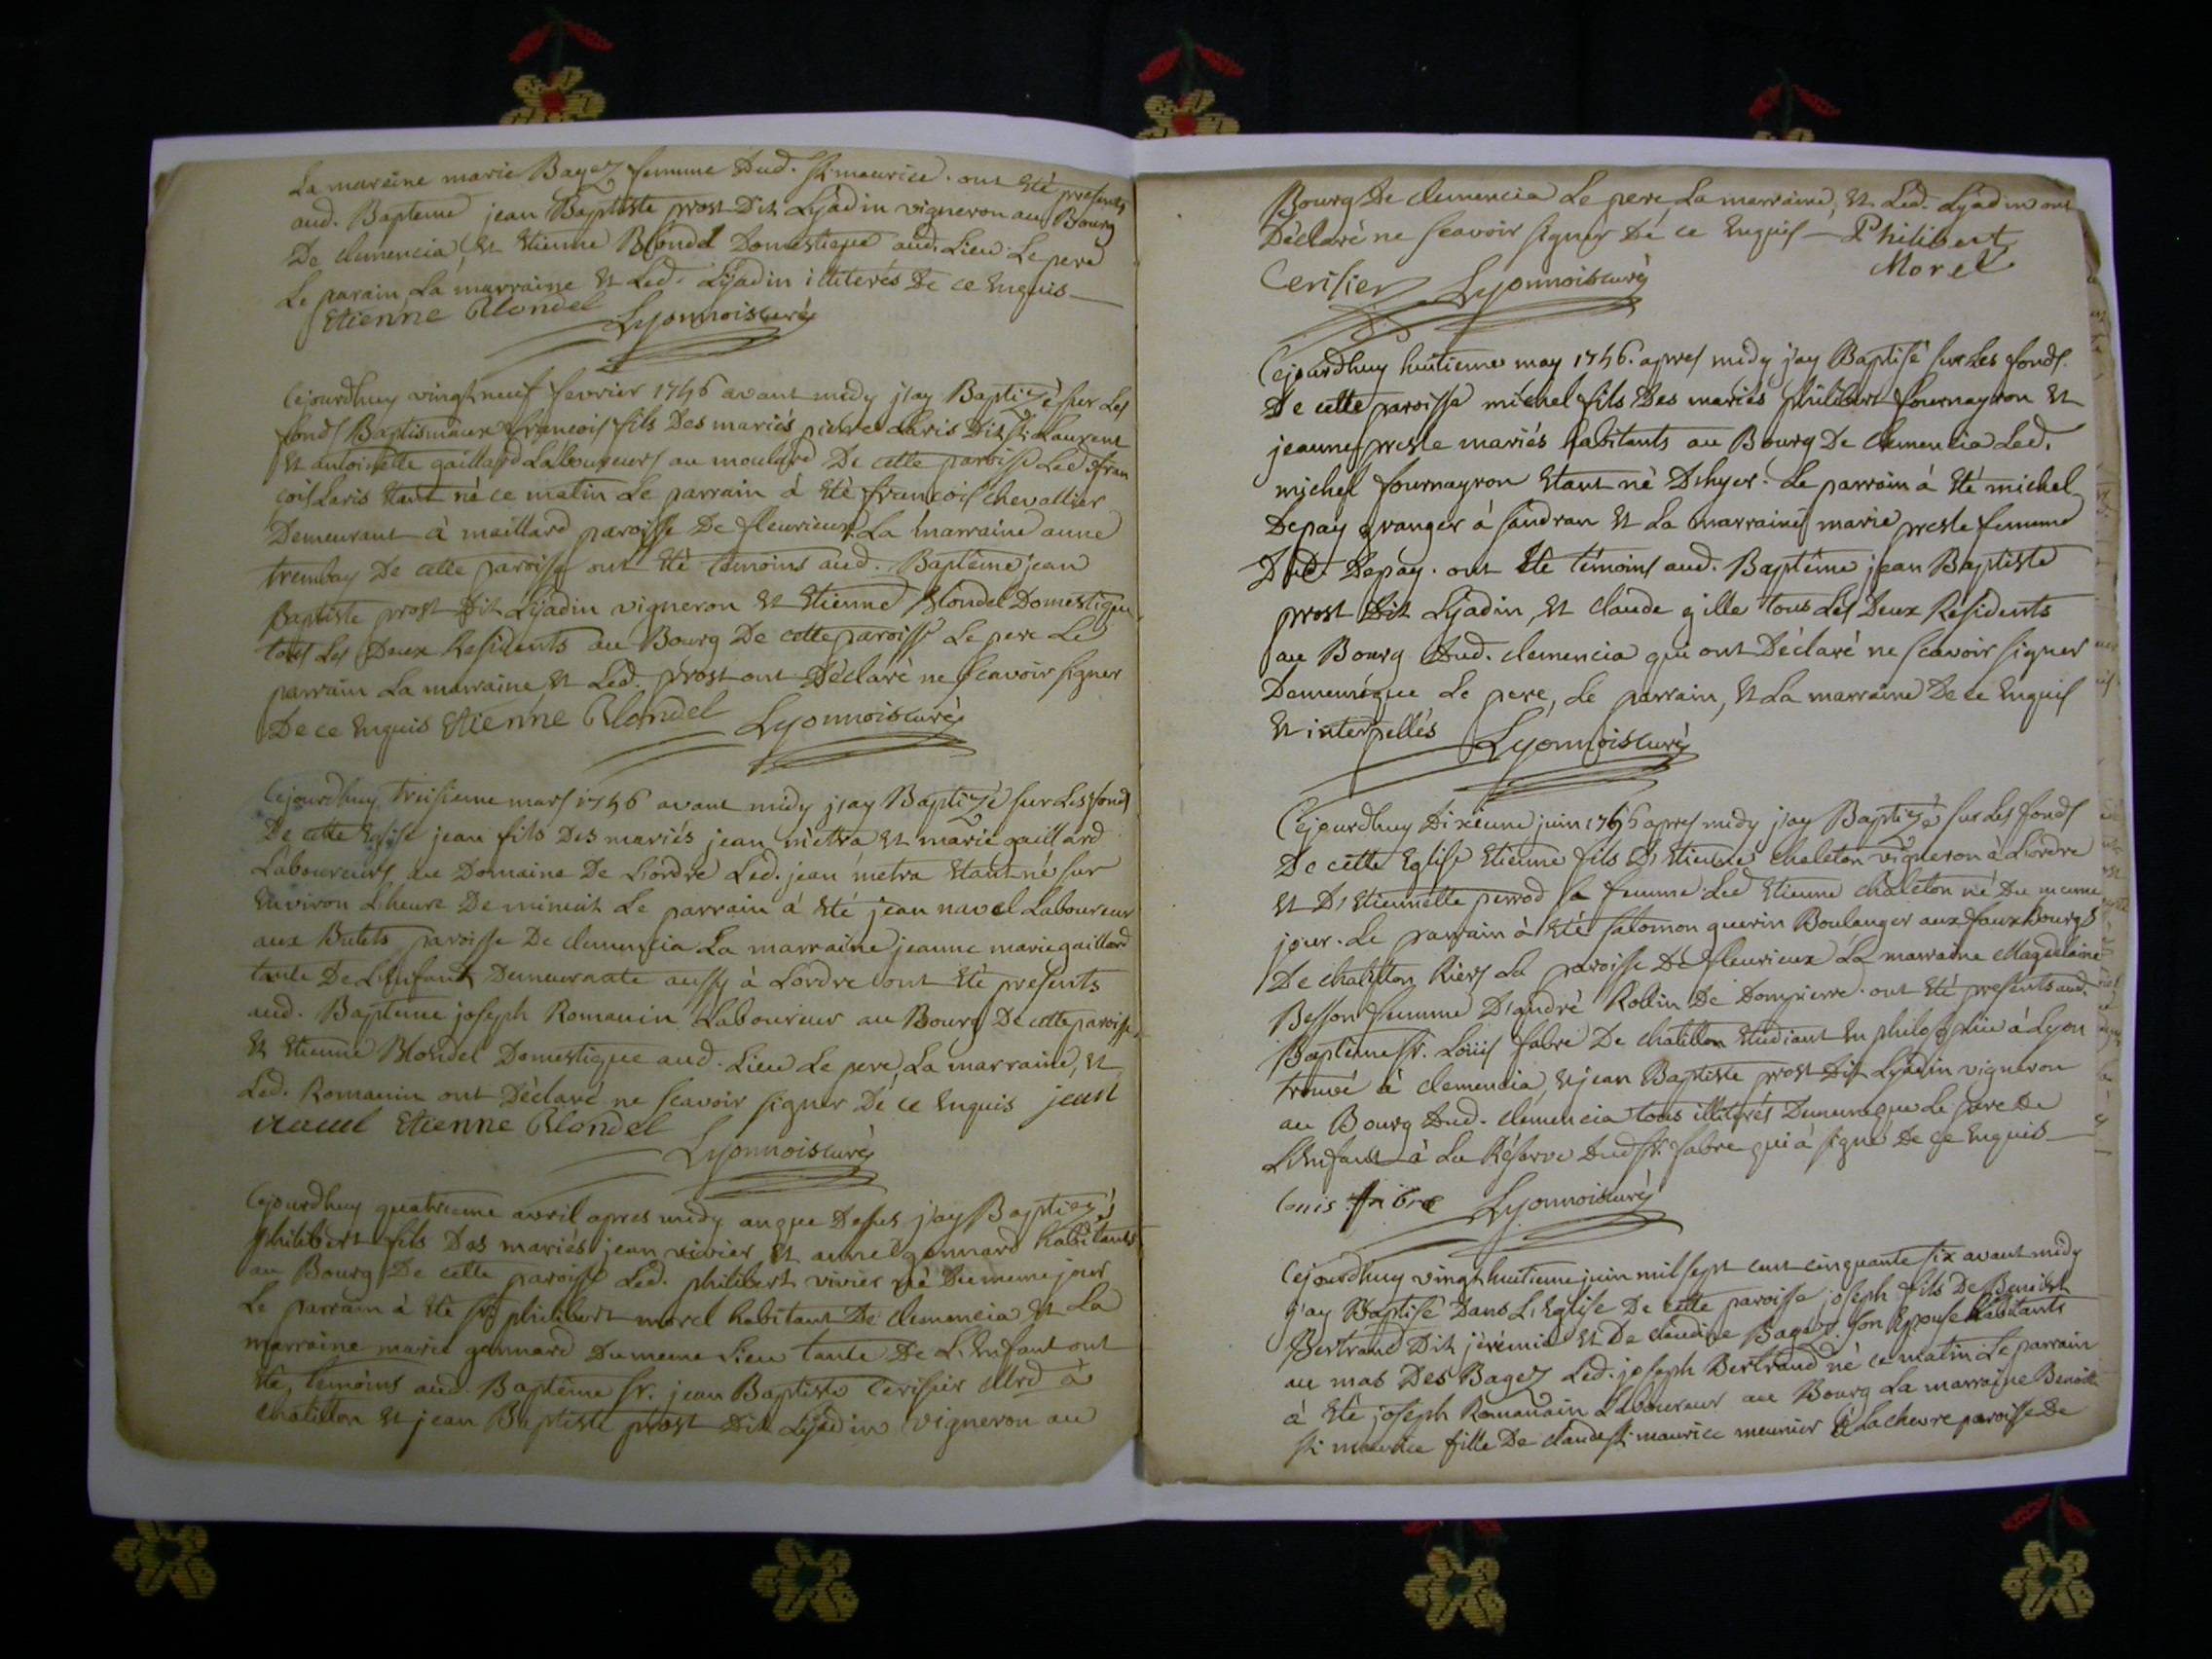 La mareine marie Bagez femme dud. St. maurice. ont Eté presents
aud. Bapteme jean Baptiste prost Dit Lyadin vigneron au Bourg
De clemencia, Et Etienne Blondel Domestique aud. Lieu Le pere
Le parain La marraine Et Led. Lyadin illiterés De ce Enquis
Etienne Blondel Lyonnois curé
Cejourdhuy vingt neuf fevrier 1756 avant midy j'ay Baptizé sur Les
fonds Baptismaux francois fils Des mariés pierre Laris Dit St. Laurent
Et antoinette gaillard Laboureurs au moulard De cette paroisse Led. fran
cois Laris Etant né ce matin Le parrain à Eté francois chevallier
Demeurant à maillard paroisse De fleurieux. La marraine anne
trembay De cette paroisse ont Eté témoins aud. Baptême jean
Baptiste prost Dit Lyadin vigneron Et Etienne Blondel Domestique
tous Les Deux Residents au Bourg De cette paroisse Le pere Le
parrain La marraine Et Led. prost ont Déclaré ne scavoir signer
De ce Enquis Etienne Blondel Lyonnois curé
Cejourdhuy treisieme mars 1756 avant midy j'ay Baptizé sur Les fonds
De cette Eglise jean fils Des mariés jean métra Et marie gaillard
Laboureurs au Domaine De Lordre Led. jean metra Etant né sur
Environ Lheure De minuit Le parrain à Eté jean navel Laboureur
aux Butets paroisse De clemencia La marraine jeanne marie gaillard
tante De L'Enfant Demeurante aussy à Lordre ont Eté presents
aud. Bapteme joseph Romanin Laboureur au Bourg De cette paroisse,
Et Etienne Blondel Domestique aud. Lieu Le pere, La marraine, Et
Led. Romanin ont Déclaré ne scavoir signer De ce Enquis jean
navel Etienne Blondel
Lyonnois curé
Cejourdhuy quatrieme avril apres midy anque Dessus j'ay Baptizé
philibert fils Des mariés jean vivier Et anne gonnard habitants
au Bourg De cette paroisse Led. philibert vivier né Du meme jour
Le parrain à Eté Sr. philibert morel habitant De clemencia Et La
marraine marie gonnard Du meme Lieu tante De L'Enfant ont
Eté, temoins aud. Baptême Sr. jean Baptiste Cerisier Mrd à
chatillon Et jean Baptiste prost Dit Lyadin vigneron au
Bourg De clemencia Le pere, La marraine, Et Led. Lyadin ont
Déclaré ne scavoir signer De ce Enquis Philibert
Cerisier Lyonnois curé Morel
Cejourdhuy huitieme may 1756. apres midy j'ay Baptisé sur Les fonds
De cette paroisse michel fils Des mariés philibert fournayron Et
jeanne presle mariés habitants au Bourg De clemencia Led.
michel fournayron Etant né D'hyer. Le parrain à Eté michel
Depay granger à sandran Et La marraine marie presle femme
Dud. Depay. ont Eté témoins aud. Baptême jean Baptiste
prost Dit Lyadin, Et claude gille tous Les Deux Residents
au Bourg Dud. clemencia qui ont Déclaré ne scavoir signer
Demempque Le pere, Le parrain, Et La marraine De ce Enquis
Et interpellés Lyonnois curé
Cejourdhuy Dixieme juin 1756 apres midy j'ay Baptizé sur Les fonds
De cette Eglise Etienne fils D'Etienne chaleton vigneron à Lordre
Et D'Etiennette perrod sa femme Led. Etienne chaleton né Du meme
jour. Le parrain à Eté salomon guerin Boulanger aux fauxbourgs
De chatillon Riere La paroisse De fleurieux La marraine Magdelaine
Besson femme D'andré Rollin De Dompierre. ont Eté presents aud.
Baptême Sr. Loüis fabre De chatillon Etudiant En philosophie à Lyon
trouvé à clemencia, Et jean Baptiste prost Dit Lyadin vigneron
au Bourg Dud. clemencia tous illiterés Dememeque Le pere De
L'Enfant à La Réserve Dud. Sr. fabre qui à signé De ce Enquis
Louis fabre Lyonnois curé
Cejourdhuy vingt huitieme juin mil sept cent cinquante six avant midy
j'ay Baptisé Dans L'Eglise De cette paroisse joseph fils De Benoist
Bertrand Dit jérémie Et De claudine Bagez son Epouse habitants
au mas Des Bagez Led. joseph Bertrand né ce matin Le parrain
à Eté joseph Romanain Laboureur au Bourg La marraine Benoite
St. maurice fille De claude St. maurice meunier à La chevre paroisse De